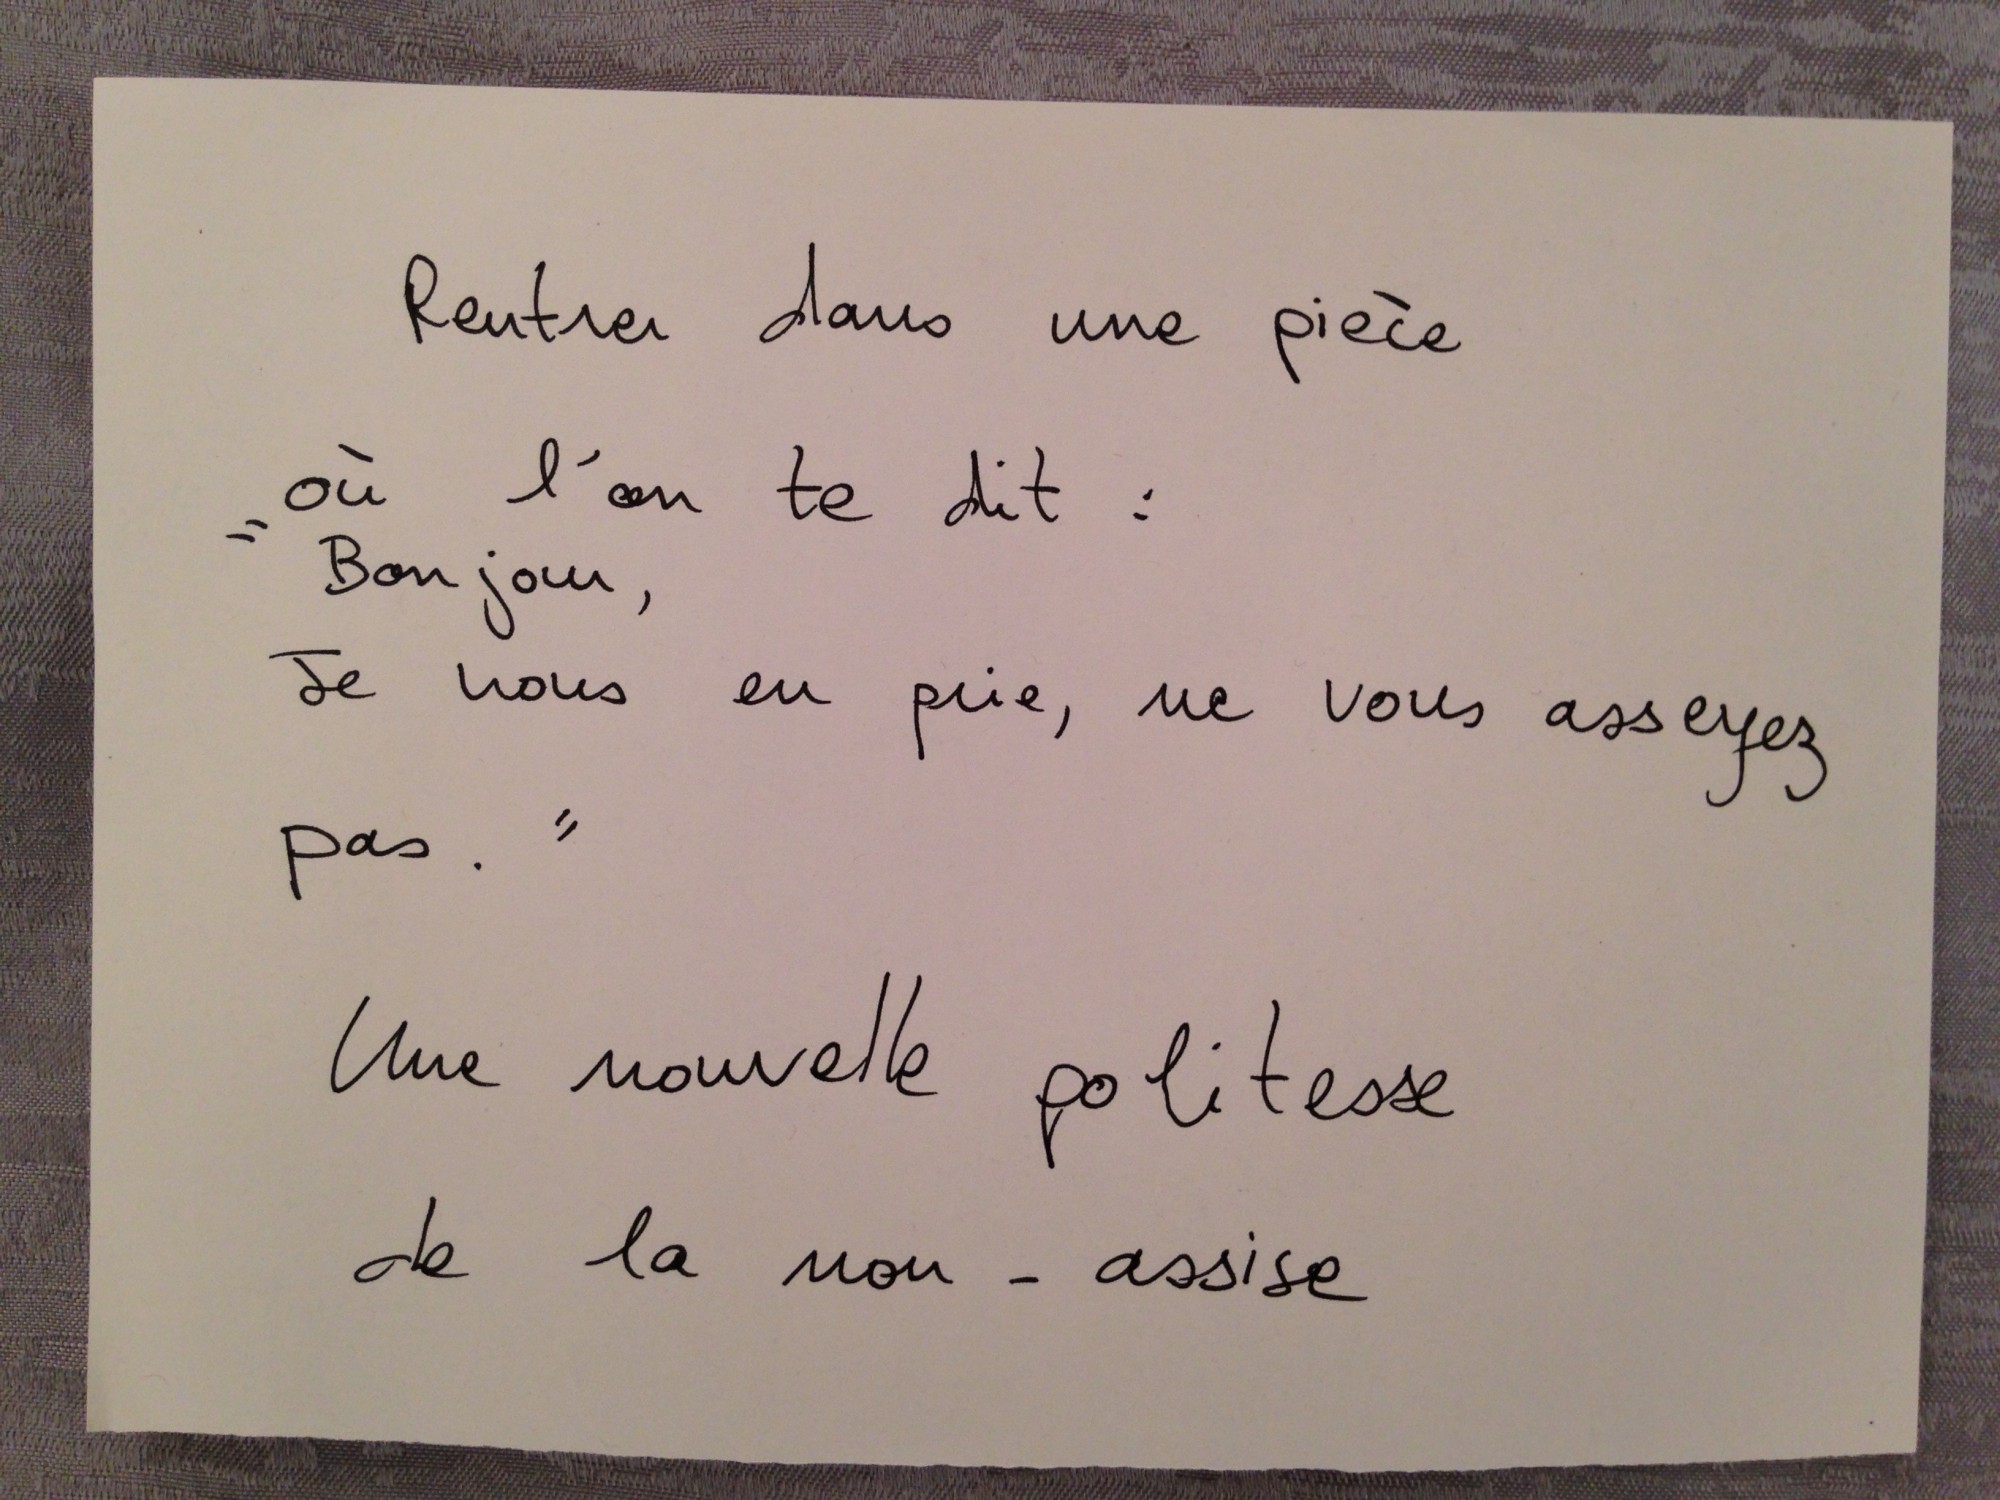 Rentrer dans une pièce
où l'on te dit :
"Bonjour,
Je vous en prie, ne vous asseyez
pas. "
Une nouvelle politesse
de la non - assise